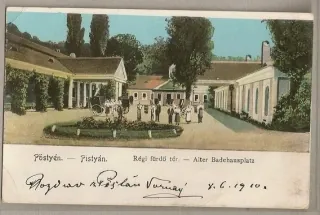 Pöstyén. — Pistyán. Régi fürdő tér. — Alter Badehausplatz
Pozdrav z Pöstyán 4.6.1910.